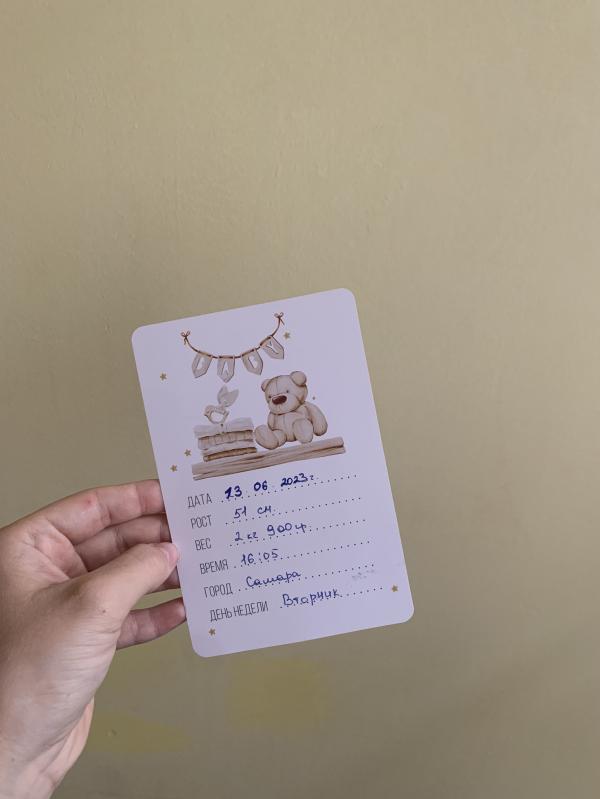 BABY
ДАТА 13 06 2023г
РОСТ 51 см
ВЕС 2 кг 900 гр.
ВРЕМЯ 16:05
ГОРОД Самара
ДЕНЬ НЕДЕЛИ Вторник